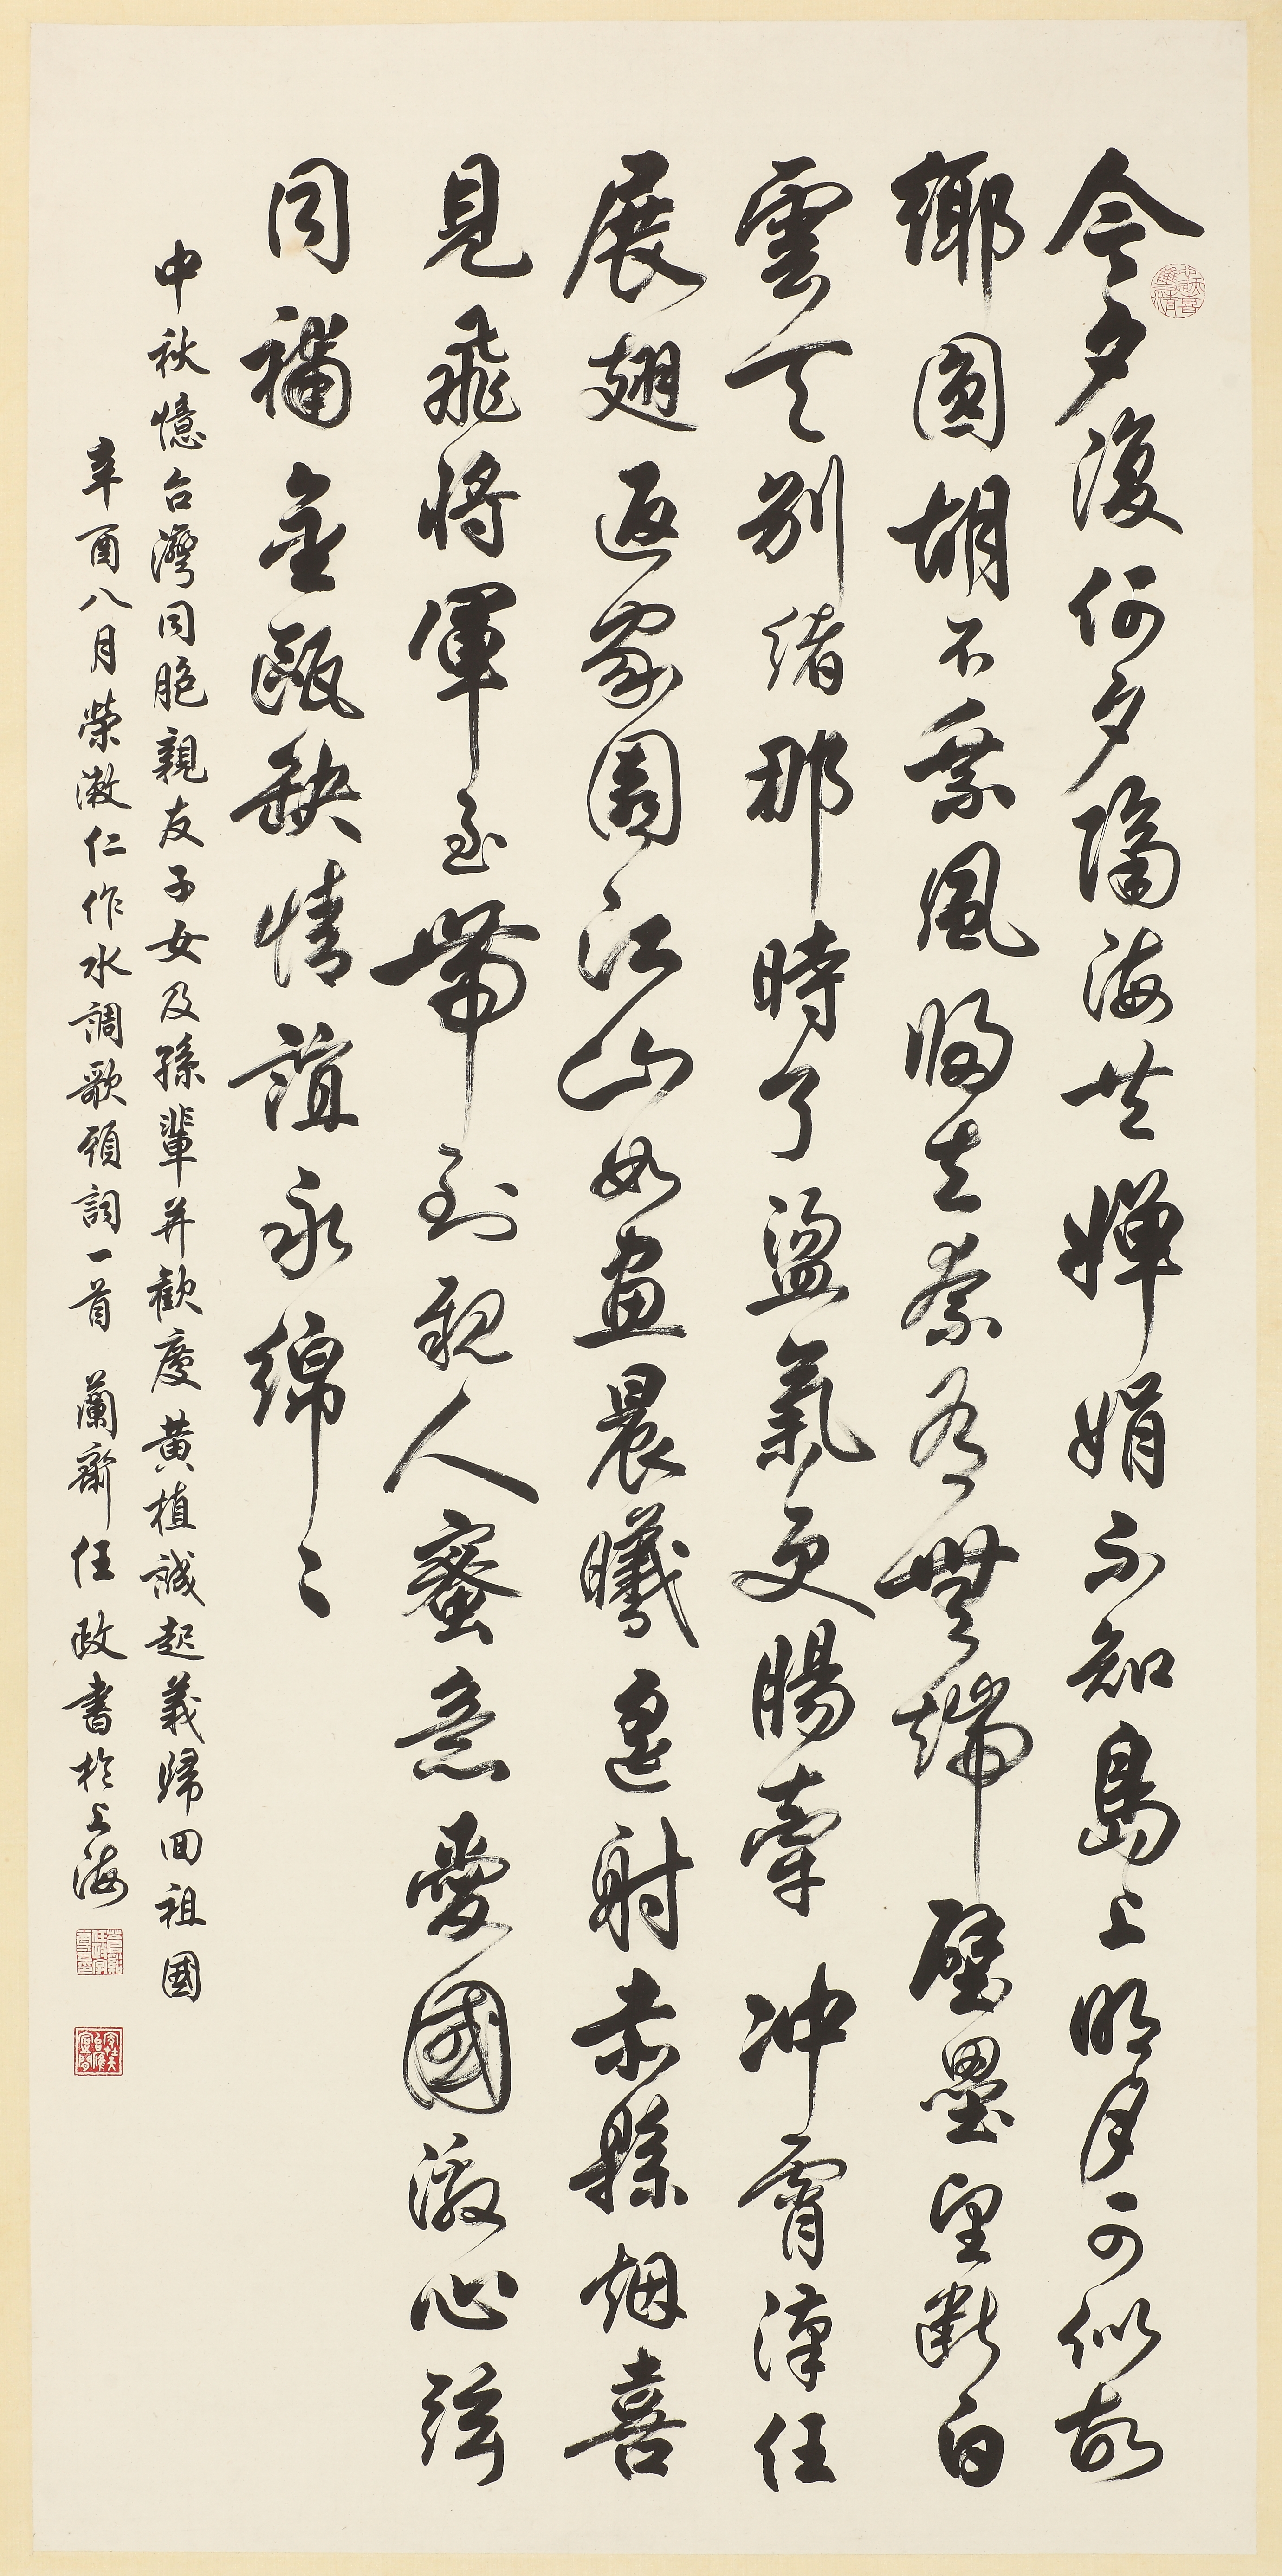 今夕復何夕隔海共嬋娟不知島上明月可似故
鄉圓胡不乘風歸去奈有無端壁壘望斷白
雲天別緒那時了盪氣更腸牽冲霄漢任
展翅返家園江山如畫晨曦遥射赤縣烟喜
見飛將軍至帶到親人蜜意愛國激心弦
同補金甌缺情誼永綿〻
中秋憶台灣同胞親友子女及孫輩并歡慶黃植誠起義歸回祖國
辛酉八月榮漱仁作水調歌頭詞一首 蘭齋任政書於上海